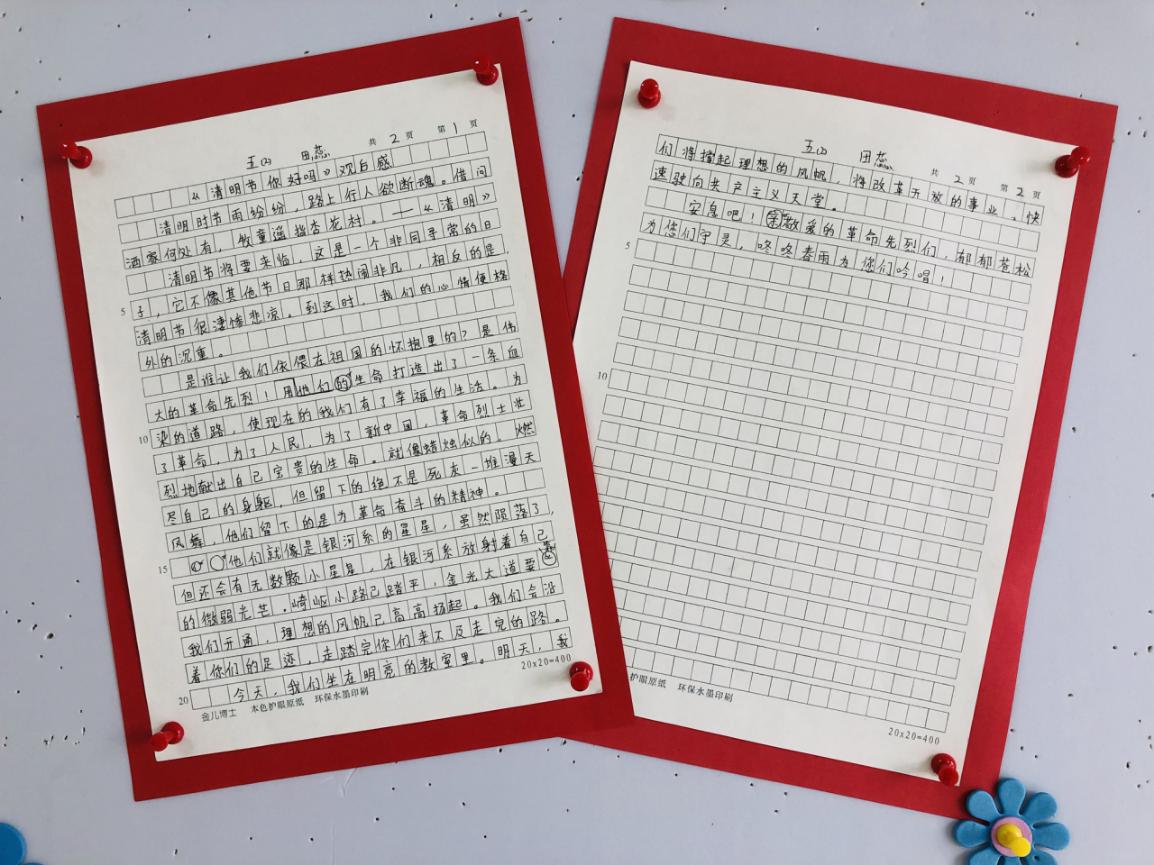 共 2 页 第 1 页
五(2) 田蕊
《清明节你好吗》观后感
清明时节雨纷纷，路上行人欲断魂。借问
酒家何处有，牧童遥指杏花村。——《清明》
清明节将要来临，这是一个非同寻常的日
5 子，它不像其他节日那样热闹非凡，相反的是，
清明节很凄惨悲凉。到这时，我们的心情便格
外的沉重。
是谁让我们依偎在祖国的怀抱里的？是伟
大的革命先烈！用他们的生命打造出了一条血
10 染的道路，使现在的我们有了幸福的生活。为
了革命，为了人民，为了新中国，革命烈士壮
烈地献出自己宝贵的生命。就像蜡烛似的。燃
尽自己的身躯，但留下的绝不是死灰一堆漫天
风舞，他们留下的是为革命奋斗的精神。
15 他们就像是银河系的星星，虽然陨落了，
但还会有无数颗小星星，在银河系放射着自己
的微弱光芒．崎岖小路已踏平，金光大道要
我们开通，理想的风帆已高高扬起。我们会沿
着你们的足迹，走踏完你们来不及走完的路。
20 今天，我们坐在明亮的教室里。明天，我
金儿博士 本色护眼原纸 环保水墨印刷 20x20=400
共 2 页 第 2 页
五(2) 田蕊
们将撑起理想的风帆，将改革开放的事业，快
速驶向共产主义天堂。
安息吧！亲敬爱的革命先烈们，郁郁苍松
5 为您们守灵，咚咚春雨为您们吟唱！
10
护眼原纸 环保水墨印刷 20x20=400